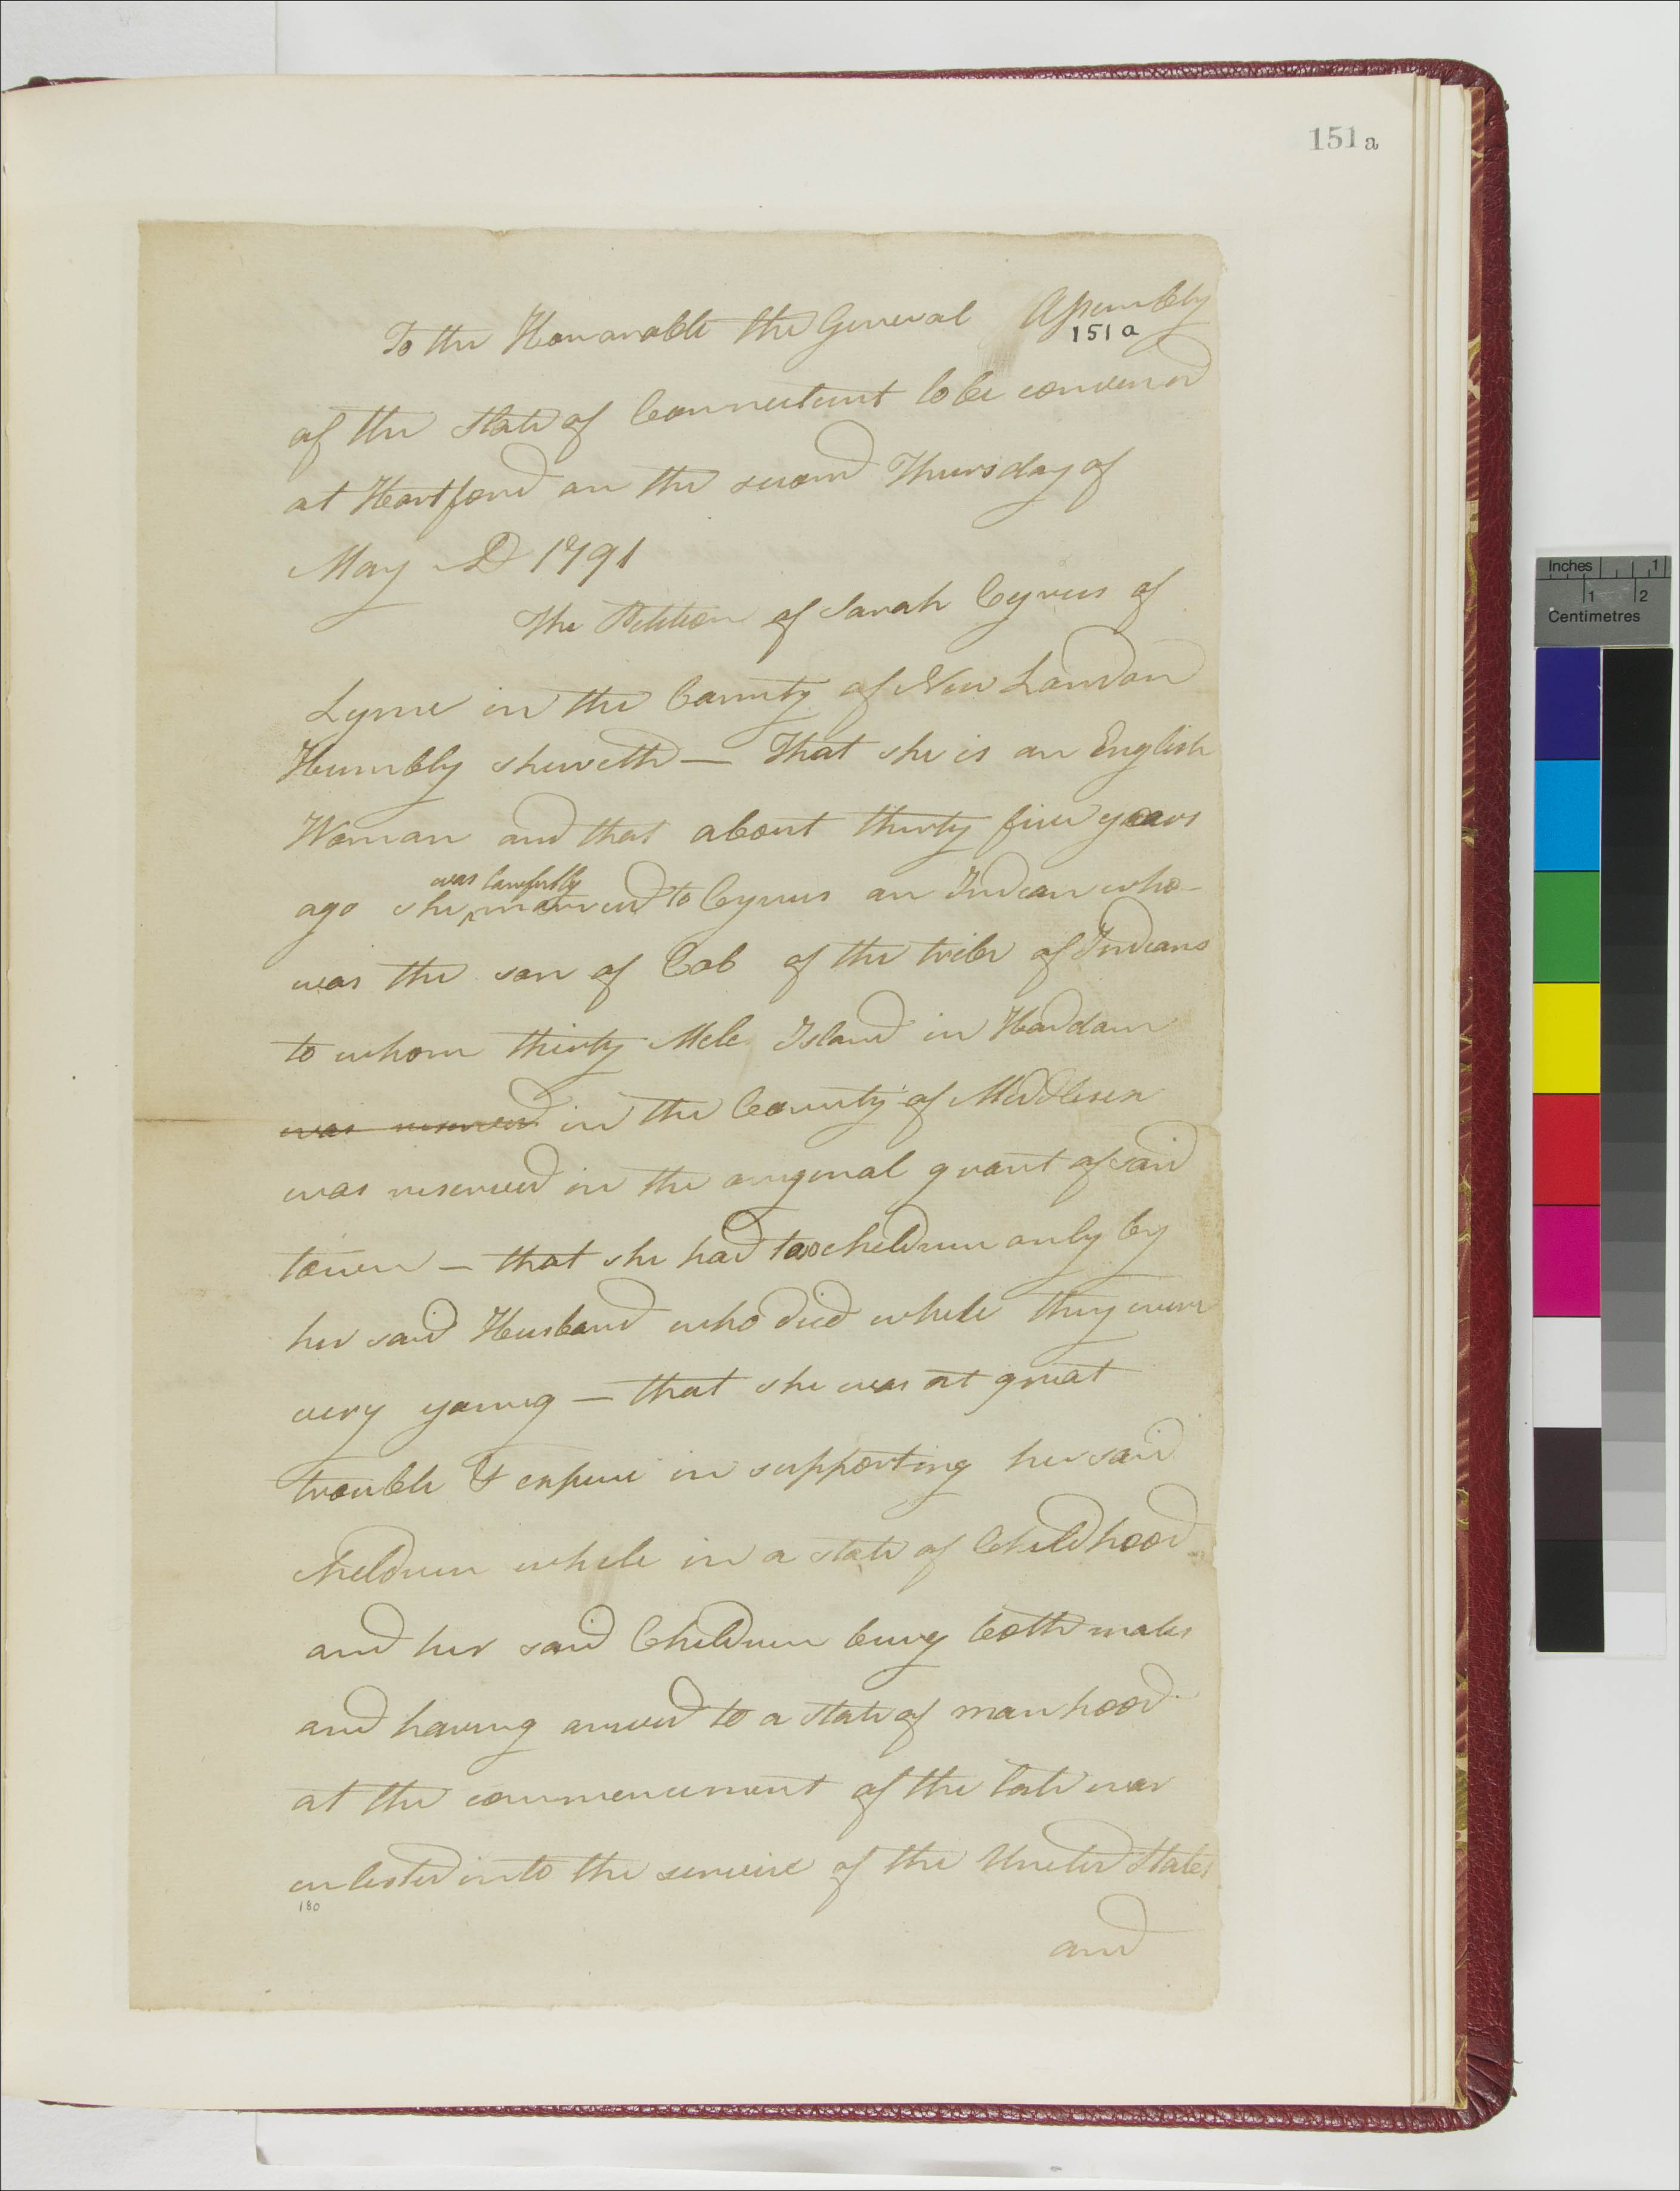 151a
To the Honorable the General Assembly
151a
of the State of Connecticut to be convened
at Hartford on the second Thursday of
May AD 1791
The Petition of Sarah Cyrus of
Lyme in the County of New London
Humbly sheweth — That she is an English
Woman and that about thirty five years
was lawfully
ago she ^ married to Cyrus an Indian who
was the son of Cob of the tribe of Indians
to whom thirty Mile Island in Haddam
was reserved in the County of Middlesex
was reserved in the original grant of said
town — that she had two children only by
her said Husband who died while they were
very young — that she was at great
trouble & expence in supporting her said
children while in a state of Childhood
and her said Children being both males
and having arrived to a state of manhood
at the commencement of the late war
enlisted into the service of the United States
180
and
Inches 1
1 2
Centimetres